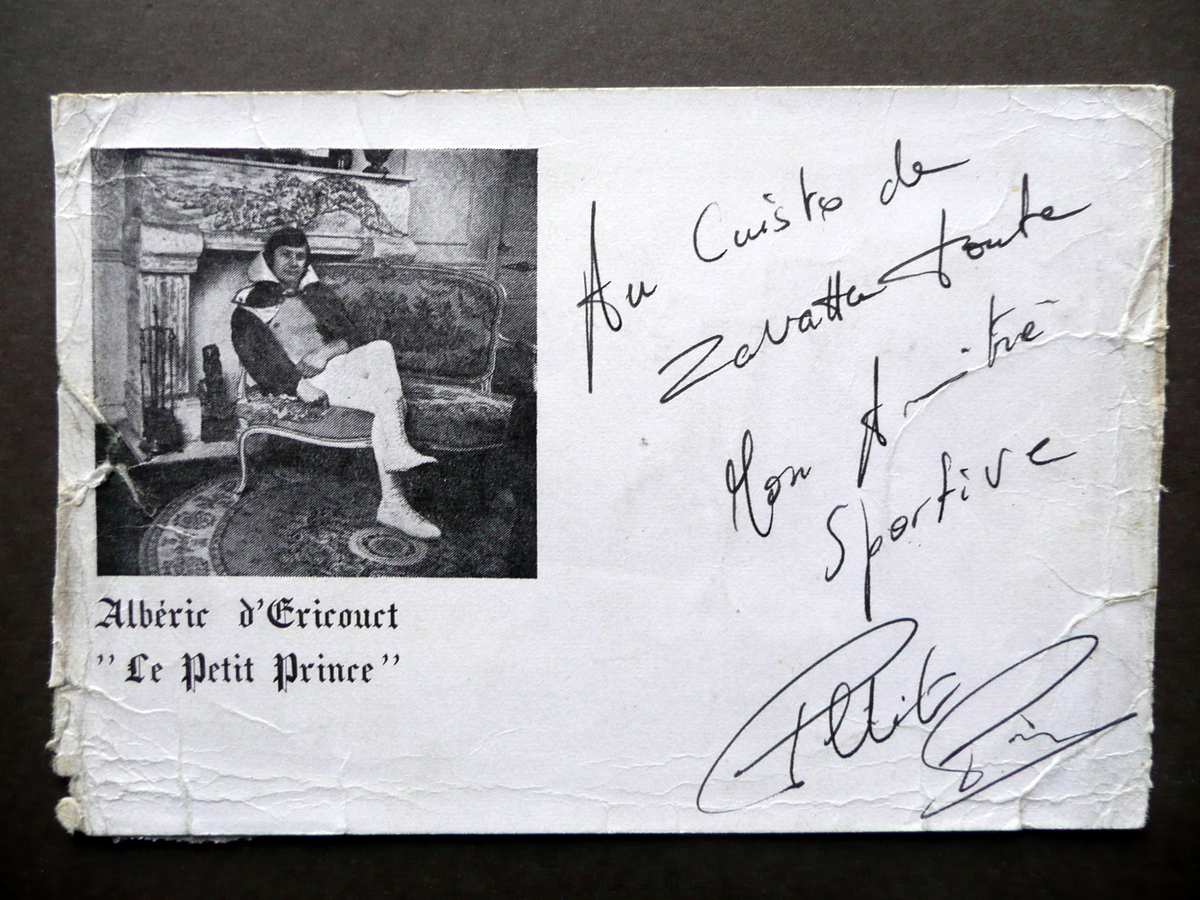 Albéric d'Ericouct
" Le Petit Prince "
Au Cuisto de
Zavatta toute
Mon Amitié
Sportive
Petit
Prin